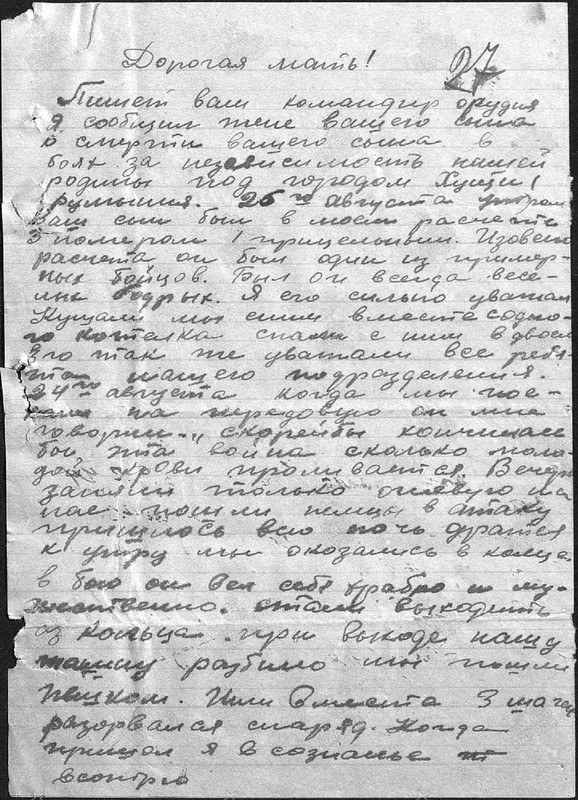 Дорогая мать!
27
Пишет ваш командир орудия
я сообщил жене вашего сына
о смерти вашего сына в
боях за независимость нашей
родины под городом Хущи!
Румыния. 25го августа утром
Ваш сын был в моем расчете
3 номером 1 прицельным. Изо всего
расчета он был один из пример-
ных бойцов. Был он всегда весе-
лым бодрым. Я его сильно уважал
Кушали мы сним вместе содно-
го котелка спали с ним вдвоем
Его так же уважали все ребя-
та нашего подразделения.
24го августа когда мы пое-
на передовую он мне
говорил „скорейбы кончилась
бы эта война сколько моло-
дой крови проливается. Вечером
заняли только огневую на
нас пошли немцы в атаку
пришлось всю ночь дратся
к утру мы оказались в кольце
в бою он вел себя храбро и му-
жественно. стали выходить
из кольца. при выходе нашу
машину разбило мы пошли
пешком. Шли вместе 3 шага
разорвался снаряд. Когда
пришол я в сознанье